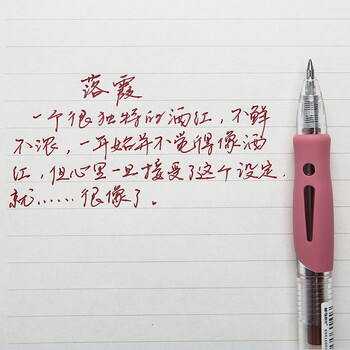 落霞
一个很独特的酒红，不鲜
不浓，一开始并不觉得像酒
红，但心里一旦接受了这个设定，
就……很像了。